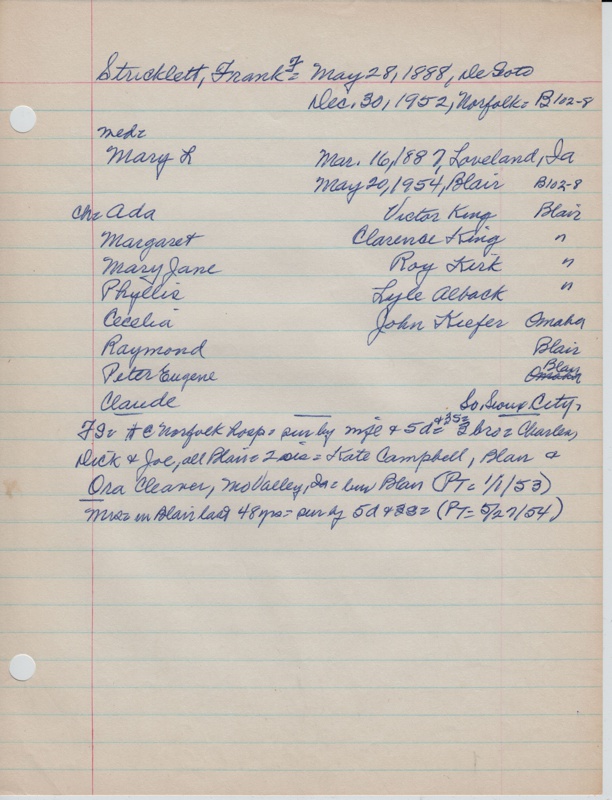 Stricklett, Frank F = May 28, 1888, De Soto
Dec. 30, 1952, Norfolk = B102-8
med=
Mary L Mar. 16, 1887, Loveland, Ia
May 20, 1954, Blair B102-8
ch= Ada Victor King Blair
Margaret Clarence King "
Mary Jane Roy Kirk "
Phyllis Lyle Alback "
Cecelia John Kiefer Omaha
Raymond Blair
Peter Eugene Blair Omaha
Claude So. Sioux City,
Norfolk Hosp = sur by & 5d= & 3s= 3 bro = Charles,
Dick & Joe, all Blair = 2 sis = Kate Campbell, Blair &
Ora Cleaver, Mo Valley, Ia = bur Blair (PT = 1/1/53)
Mrs= in Blair last 48 yrs = sur by 5d & 3s= (PT = 5/27/54)